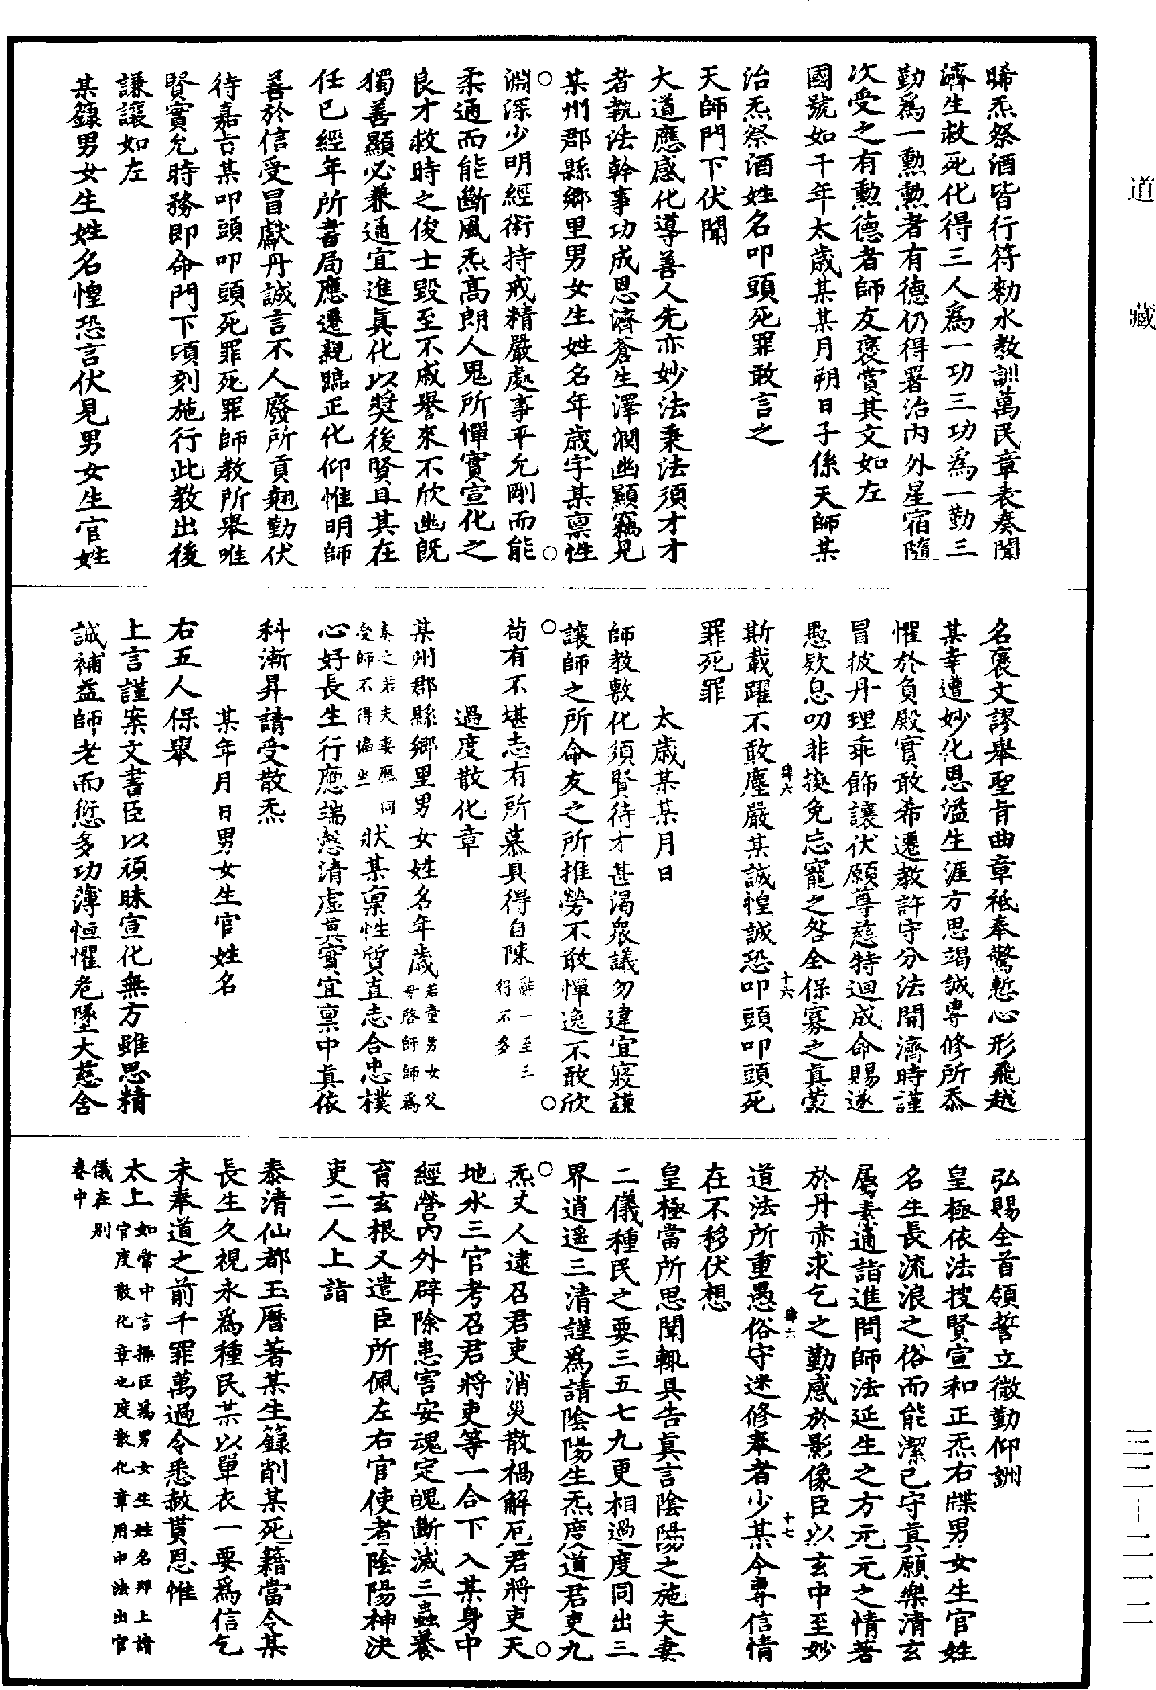 道藏
三二—二一二
晞炁祭酒皆行符勑水教訓萬民章表奏聞
濟生救死化得三人為一功三功為一勤三
勤為一勳勳者有德仍得署治內外星宿隨
次受之有勳德者師友褒賞其文如左
國號如千年太歲某某月朔日子係天師某
治炁祭酒姓名叩頭死罪敢言之
天師門下伏聞
大道應感化導善人先亦妙法秉法須才才
者執法幹事功成思濟蒼生澤潤幽顯竊見
某州郡縣鄉里男女生姓名年歲字某稟性
淵深少明經術持戒精嚴處事平允剛而能
柔通而能斷風炁高朗人鬼所憚實宣化之
良才救時之俊士毀至不戚譽來不欣幽既
獨善顯必兼通宜進真化以獎後賢且其在
任已經年所書局應遷親臨正化仰惟明師
善於信受冒獻丹誠言不人廢所貢翹勤伏
待嘉吉某叩頭叩頭死罪死罪師教所舉唯
賢實允時務即命門下頃刻施行此教出後
謙讓如左
某籙男女生姓名惶恐言伏見男女生官姓
名褒文謬舉聖旨曲章祗奉驚慙心形飛越
某幸遭妙化思溢生涯方思竭誠專修所忝
懼於負殿實敢希遷教許守分法開濟時謹
冒披丹理乖飾讓伏願尊慈特迴成命賜遂
愚欵息叨非換免忘寵之咎全保寡之真蒙
斯載躍不敢塵嚴某誠惶誠恐叩頭叩頭死
罪死罪
太歲某某月日
師教敷化須賢待才甚渴衆議勿違宜寢謙
讓師之所命友之所推勞不敢憚逸不敢欣
苟有不堪志有所慕具得自陳辭一至三得不多
過度散化章
某州郡縣鄉里男女姓名年歲若童男女父母啓師師為
奏之若夫妻應同受師不得偏坐狀某稟性質直志合忠樸
心好長生行應端慤清虛真實宜稟中真依
科漸昇請受散炁
某年月日男女生官姓名
右五人保舉
上言謹案文書臣以頑昧宣化無方雖思精
誠補益師老而愆多功薄恒懼危墜大慈含
弘賜全首領誓立微勤仰詶
皇極依法搜賢宣和正炁右牒男女生官姓
名生長流浪之俗而能潔己守真願樂清玄
屢妻通詣進問師法延生之方元元之情著
於丹赤求乞之勤感於影像臣以玄中至妙
道法所重愚俗守迷修奉者少某今專信情
在不移伏想
皇極當所思聞輙具告真言陰陽之施夫妻
二儀種民之要三五七九更相過度同出三
界逍遥三清謹為請陰陽生炁度道君吏九
炁丈人逮召君吏消災散禍解厄君將吏天
地水三官考召君將吏等一合下入某身中
經營內外辟除患害安魂定魄斷滅三蟲養
育玄根又遣臣所佩左右官使者陰陽神決
吏二人上詣
泰清仙都玉曆著某生籙削某死籍當令某
長生久視永為種民某以單衣一要為信乞
未奉道之前千罪萬過令悉赦貰恩惟
太上如常中言操臣為男女生姓名郎上請官度散化章之度散化章用中法出官
儀在別卷中